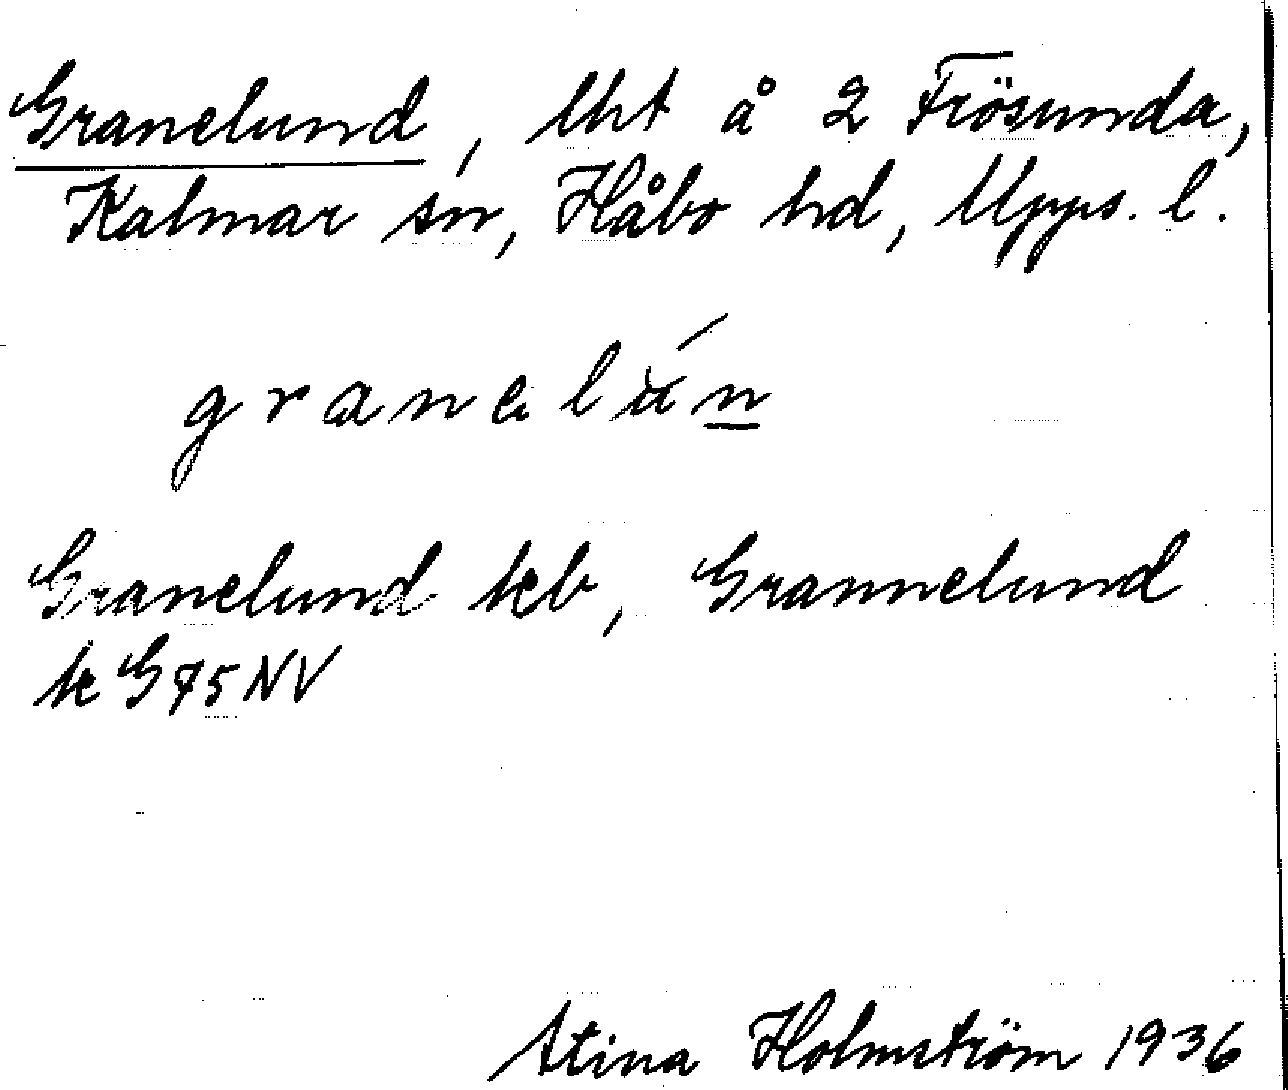 Granelund, lht å 2 Frösunda,
Kalmar sn, Håbo hd, Upps. l.
granelún
Granelund keb, Grannelund
ke G 75 NV
Stina Holmström 1936